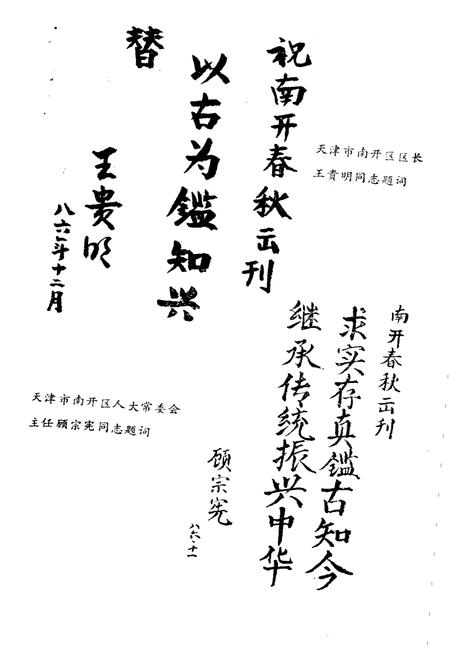 祝南开春秋出刊
以古为鑑知兴
替
王贵明
八六年十二月
天津市南开区区长
王贵明同志题词
南开春秋出刊
求实存真鑑古知今
继承传统振兴中华
顾宗宪
八六·十一
天津市南开区人大常委会
主任顾宗宪同志题词